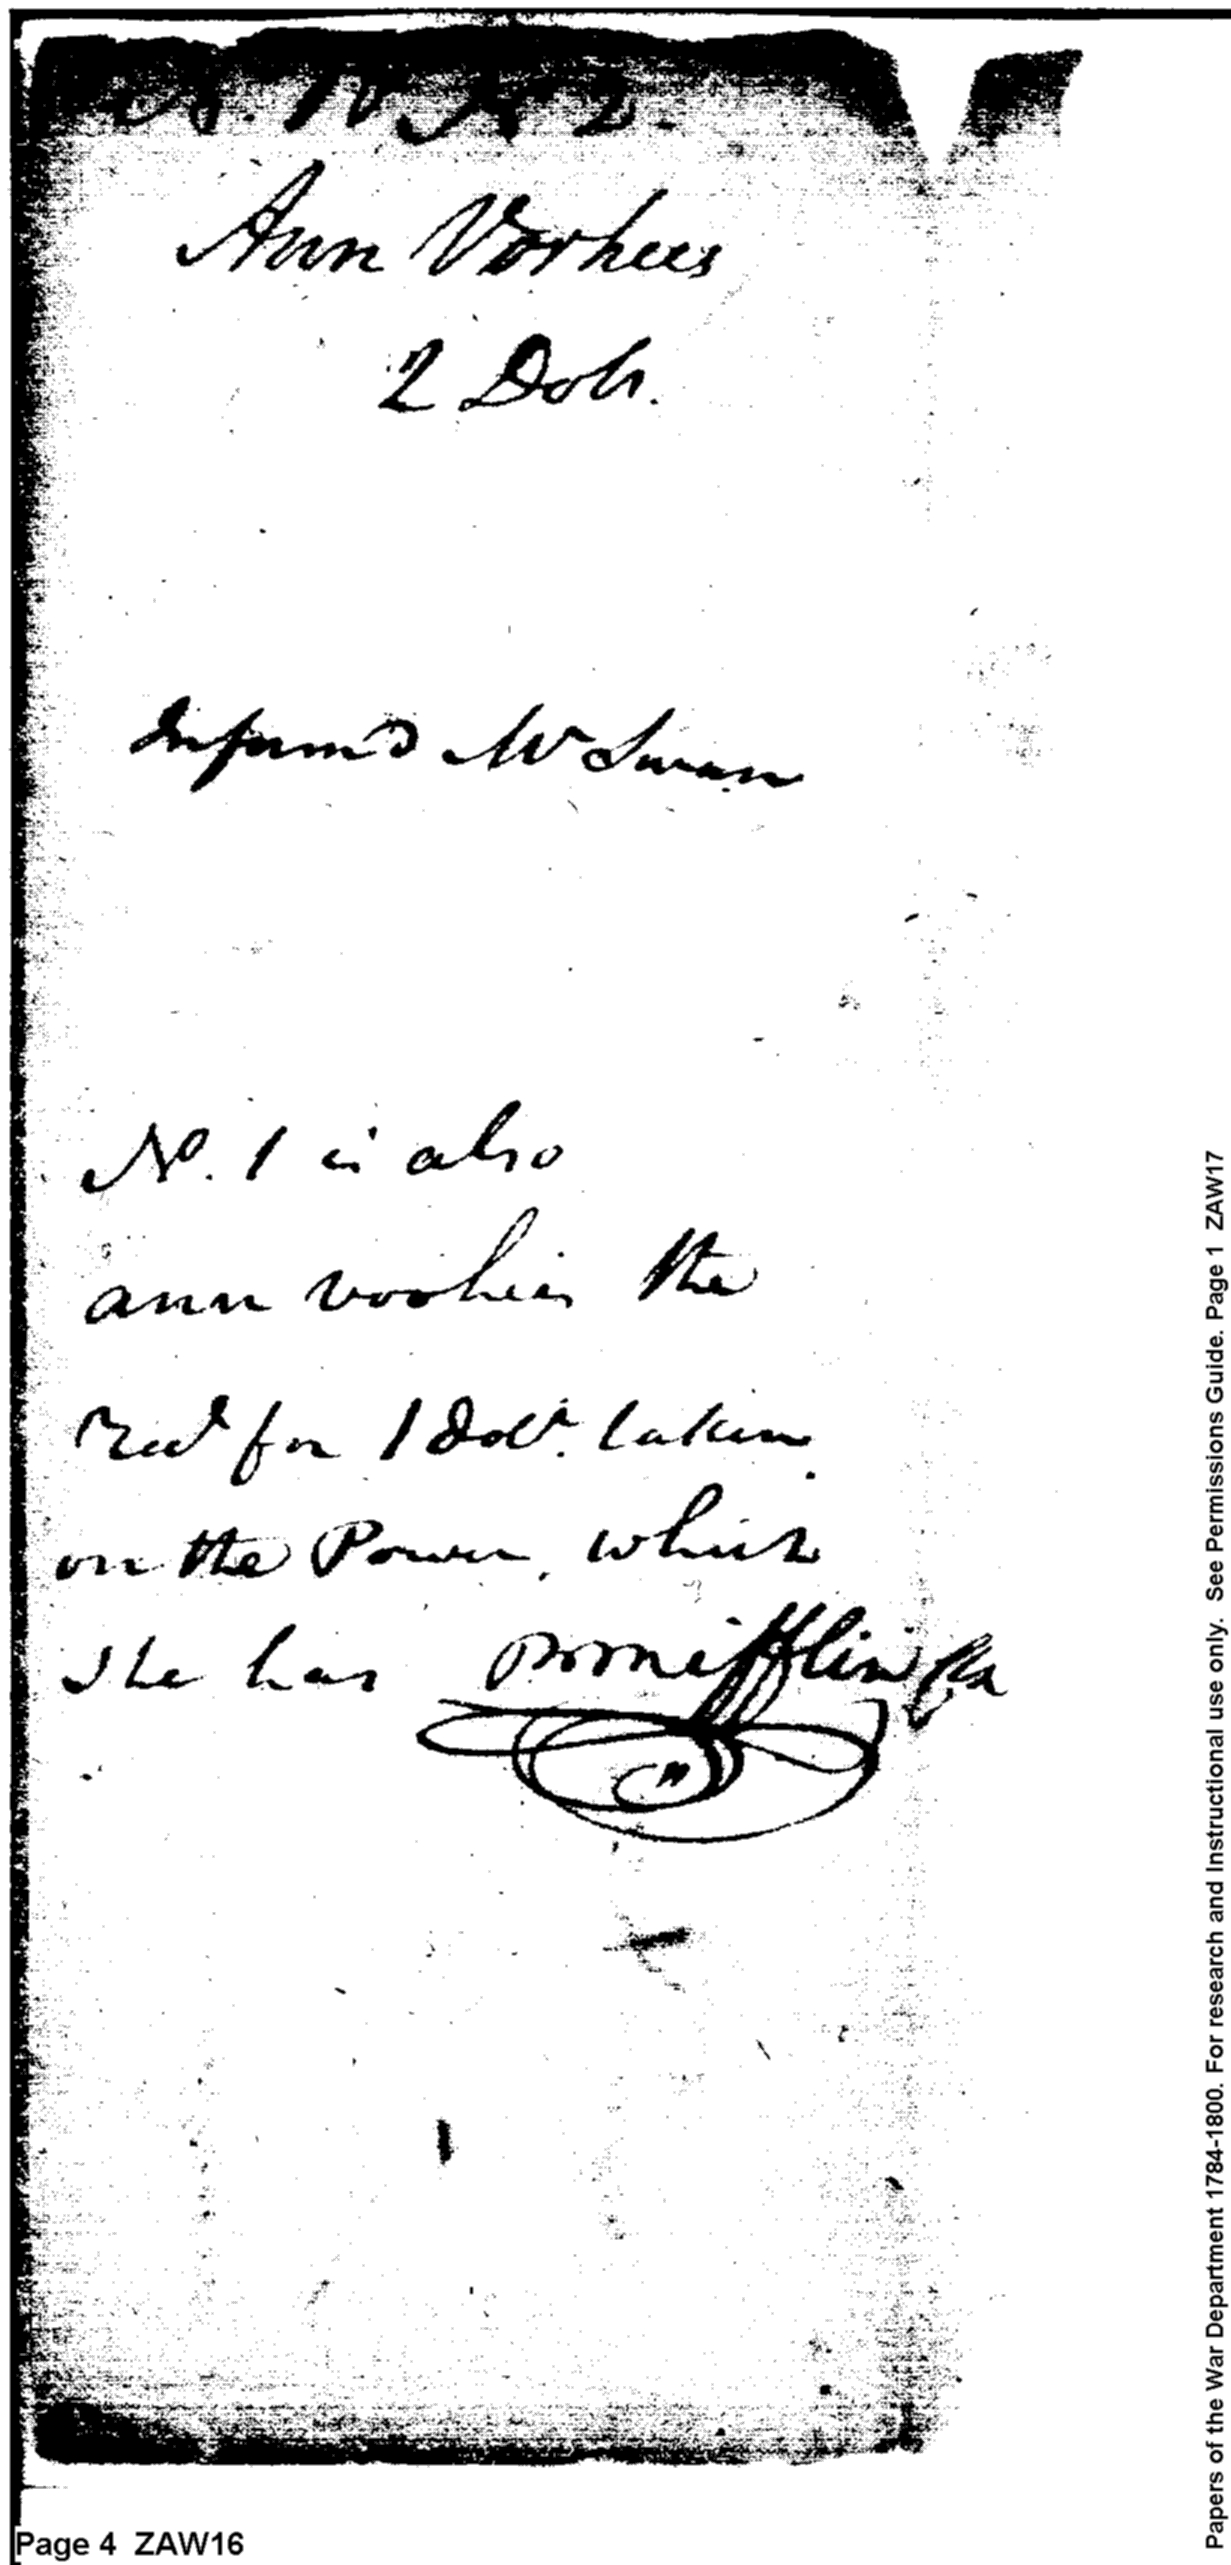 Ann Vorhees
2 Dolls.
Inform'd Mr Swan
No. 1 is also
ann voohies the
Recd for 1 Dollr. taken
on the Power, which
she has Mifflin
Page 4 ZAW16
Papers of the War Department 1784-1800. For research and Instructional use only. See Permissions Guide. Page 1 ZAW17